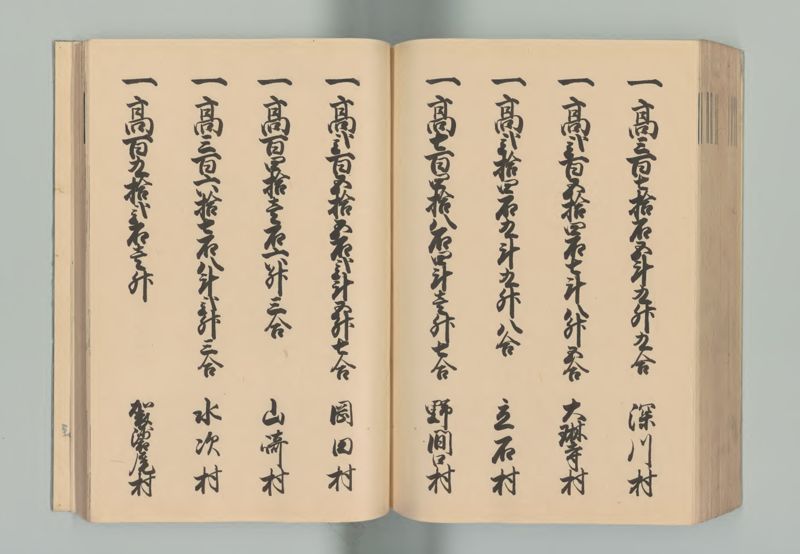 一高三百七拾石五斗九升九合 深川村
一高弐百五拾四石七斗八升五合 大琳寺村
一高弐拾四石九斗九升八合 立石村
一高七百四拾八石四斗壱升七合 野間口村
一高弐百五拾五石弐斗五升七合 岡田村
一高百四拾壱石六升三合 山崎村
一高三百六拾七石八斗弐升三合 水次村
一高百九拾弐石壱升 村